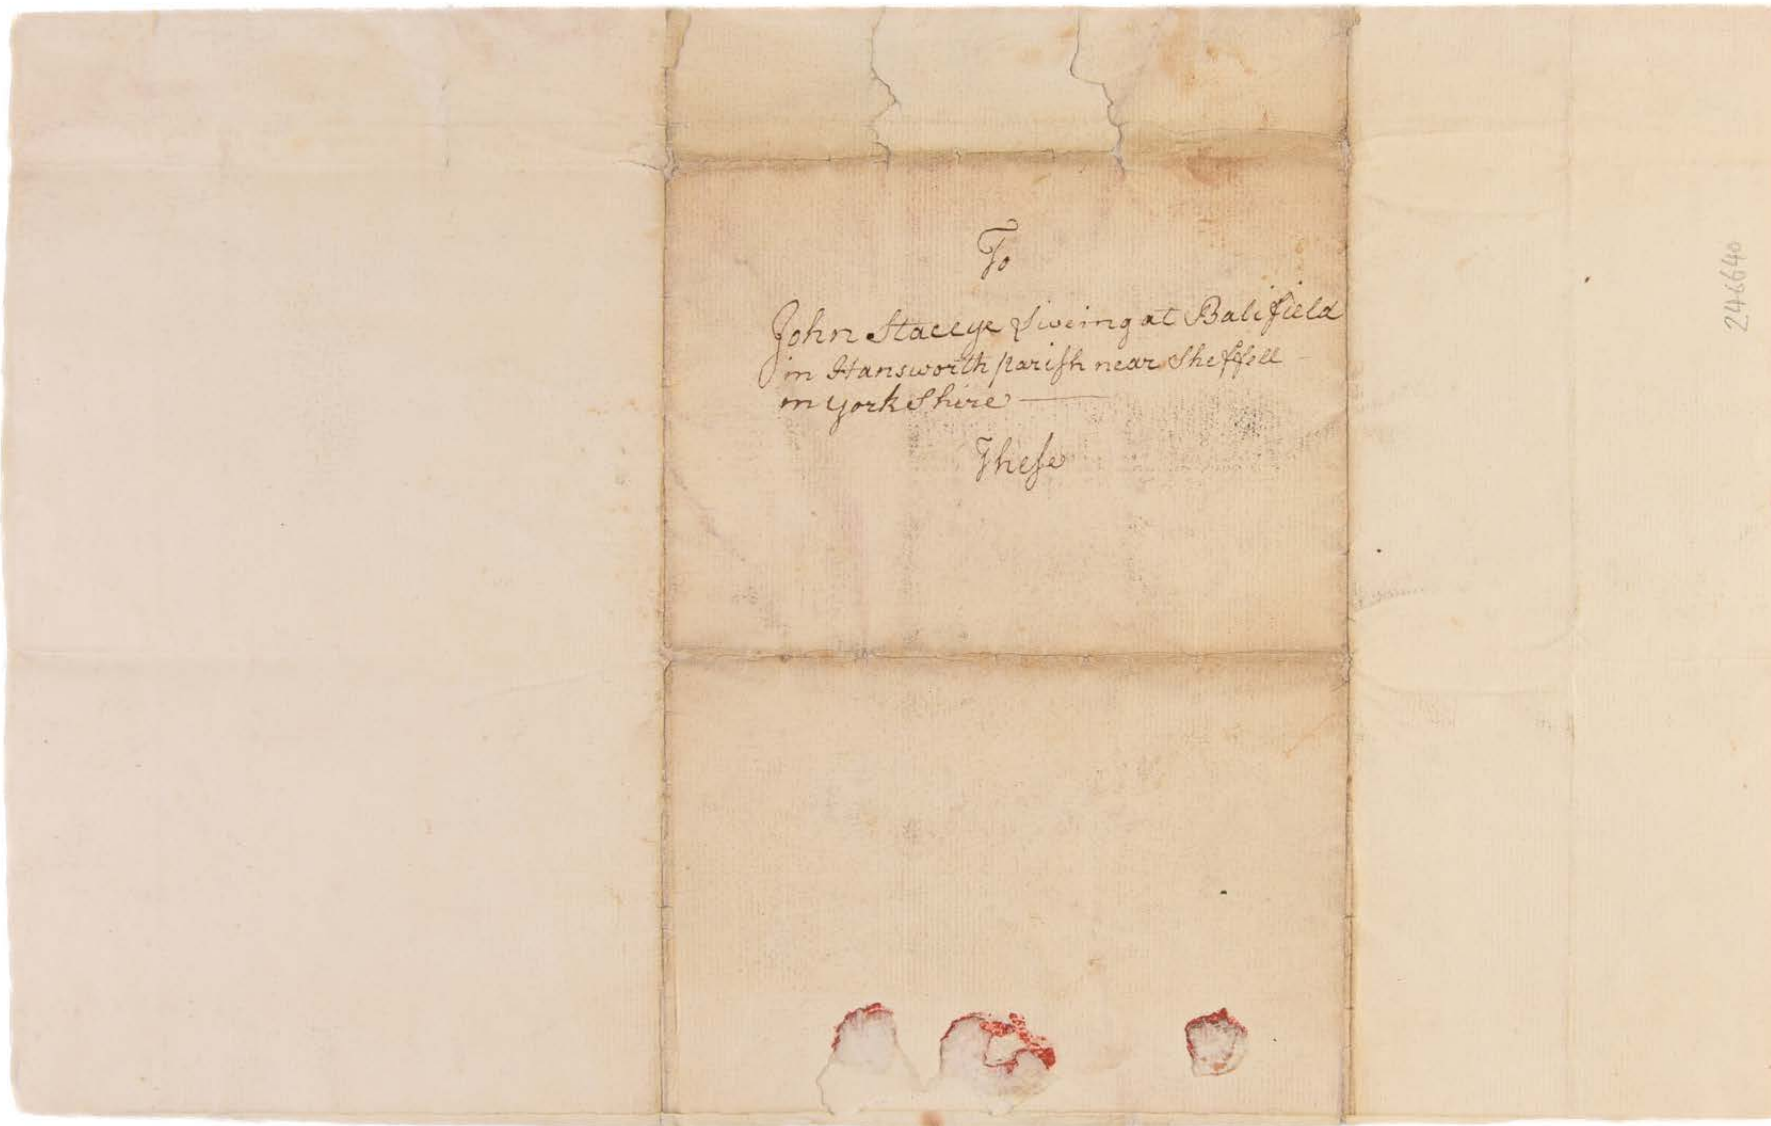 To
John Staceye Liveing at Balifield
in Hansworth parish near Sheffell
in yorkShire
These
246640